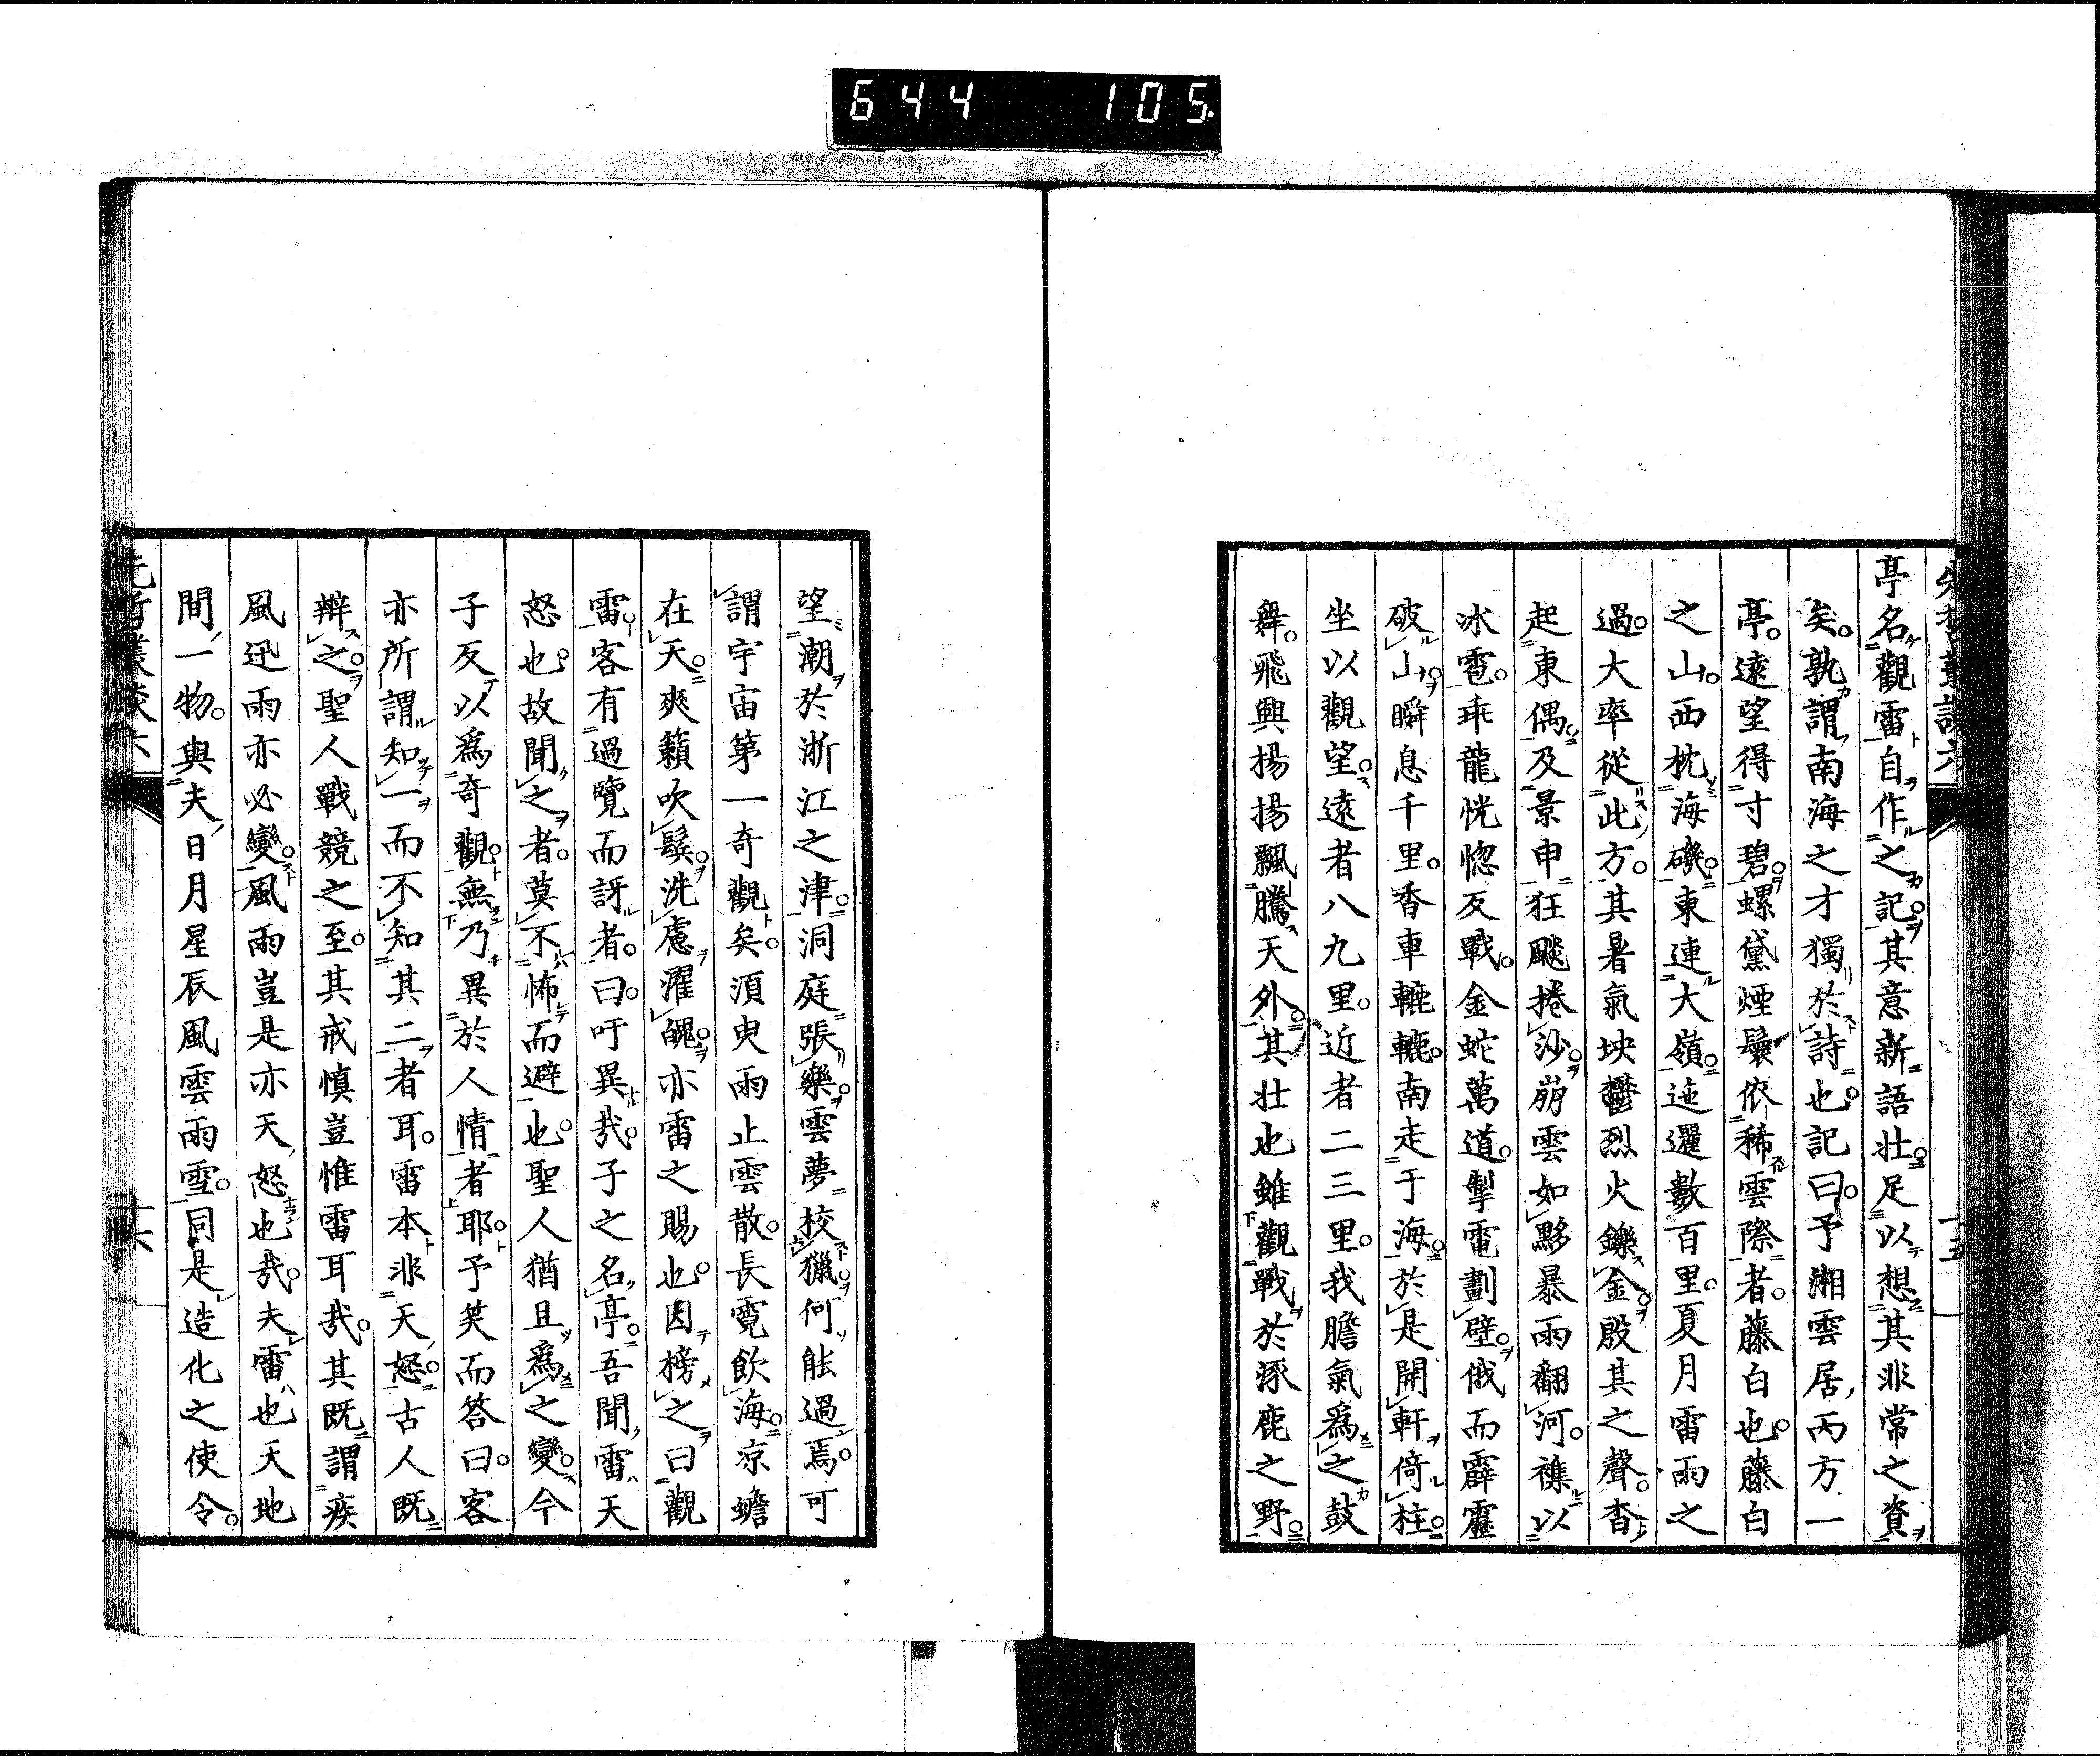 644 105
亭名觀雷自作之記其意新語壯足以想其非常之資
矣孰謂南海之才獨於詩也記曰予湘雲居丙方一
亭遠望得寸碧螺黛煙鬟依稀雲際者藤白也藤白
之山西枕海磯東連大嶺迤邐數百里夏月雷雨之
過大率從此方其暑氣坱鬱烈火鑠金殷其之聲杳
起東偶及景申狂飈捲沙崩雲如夥暴雨翻河襍以
冰雹乖龍恍惚反戰金蛇萬道掣電劃壁俄而霹靂
破山瞬息千里香車轆轆南走于海於是開軒倚柱
坐以觀望遠者八九里近者二三里我膽氣爲之鼓
舞飛興揚揚飄騰天外其壯也雖觀戰於涿鹿之野
望潮於浙江之津洞庭張樂雲夢校獵何能過焉可
謂宇宙第一奇觀矣須臾雨止雲散長霓飮海凉蟾
在天爽籟吹鬢洗慮濯魄亦雷之賜也因榜之曰觀
雷客有過覽而訝者曰吁異哉子之名亭吾聞雷天
怒也故聞之者莫不怖而避也聖人猶且爲之變今
子反以爲奇觀無乃異於人情者耶予笑而答曰客
亦所謂知一而不知其二者耳雷本非天怒古人既
辯之聖人戰競之至其戒慎豈惟雷耳哉其既謂疾
風迅雨亦必變風雨豈是亦天怒也哉夫雷也天地
間一物與夫日月星辰風雲雨雪同是造化之使令